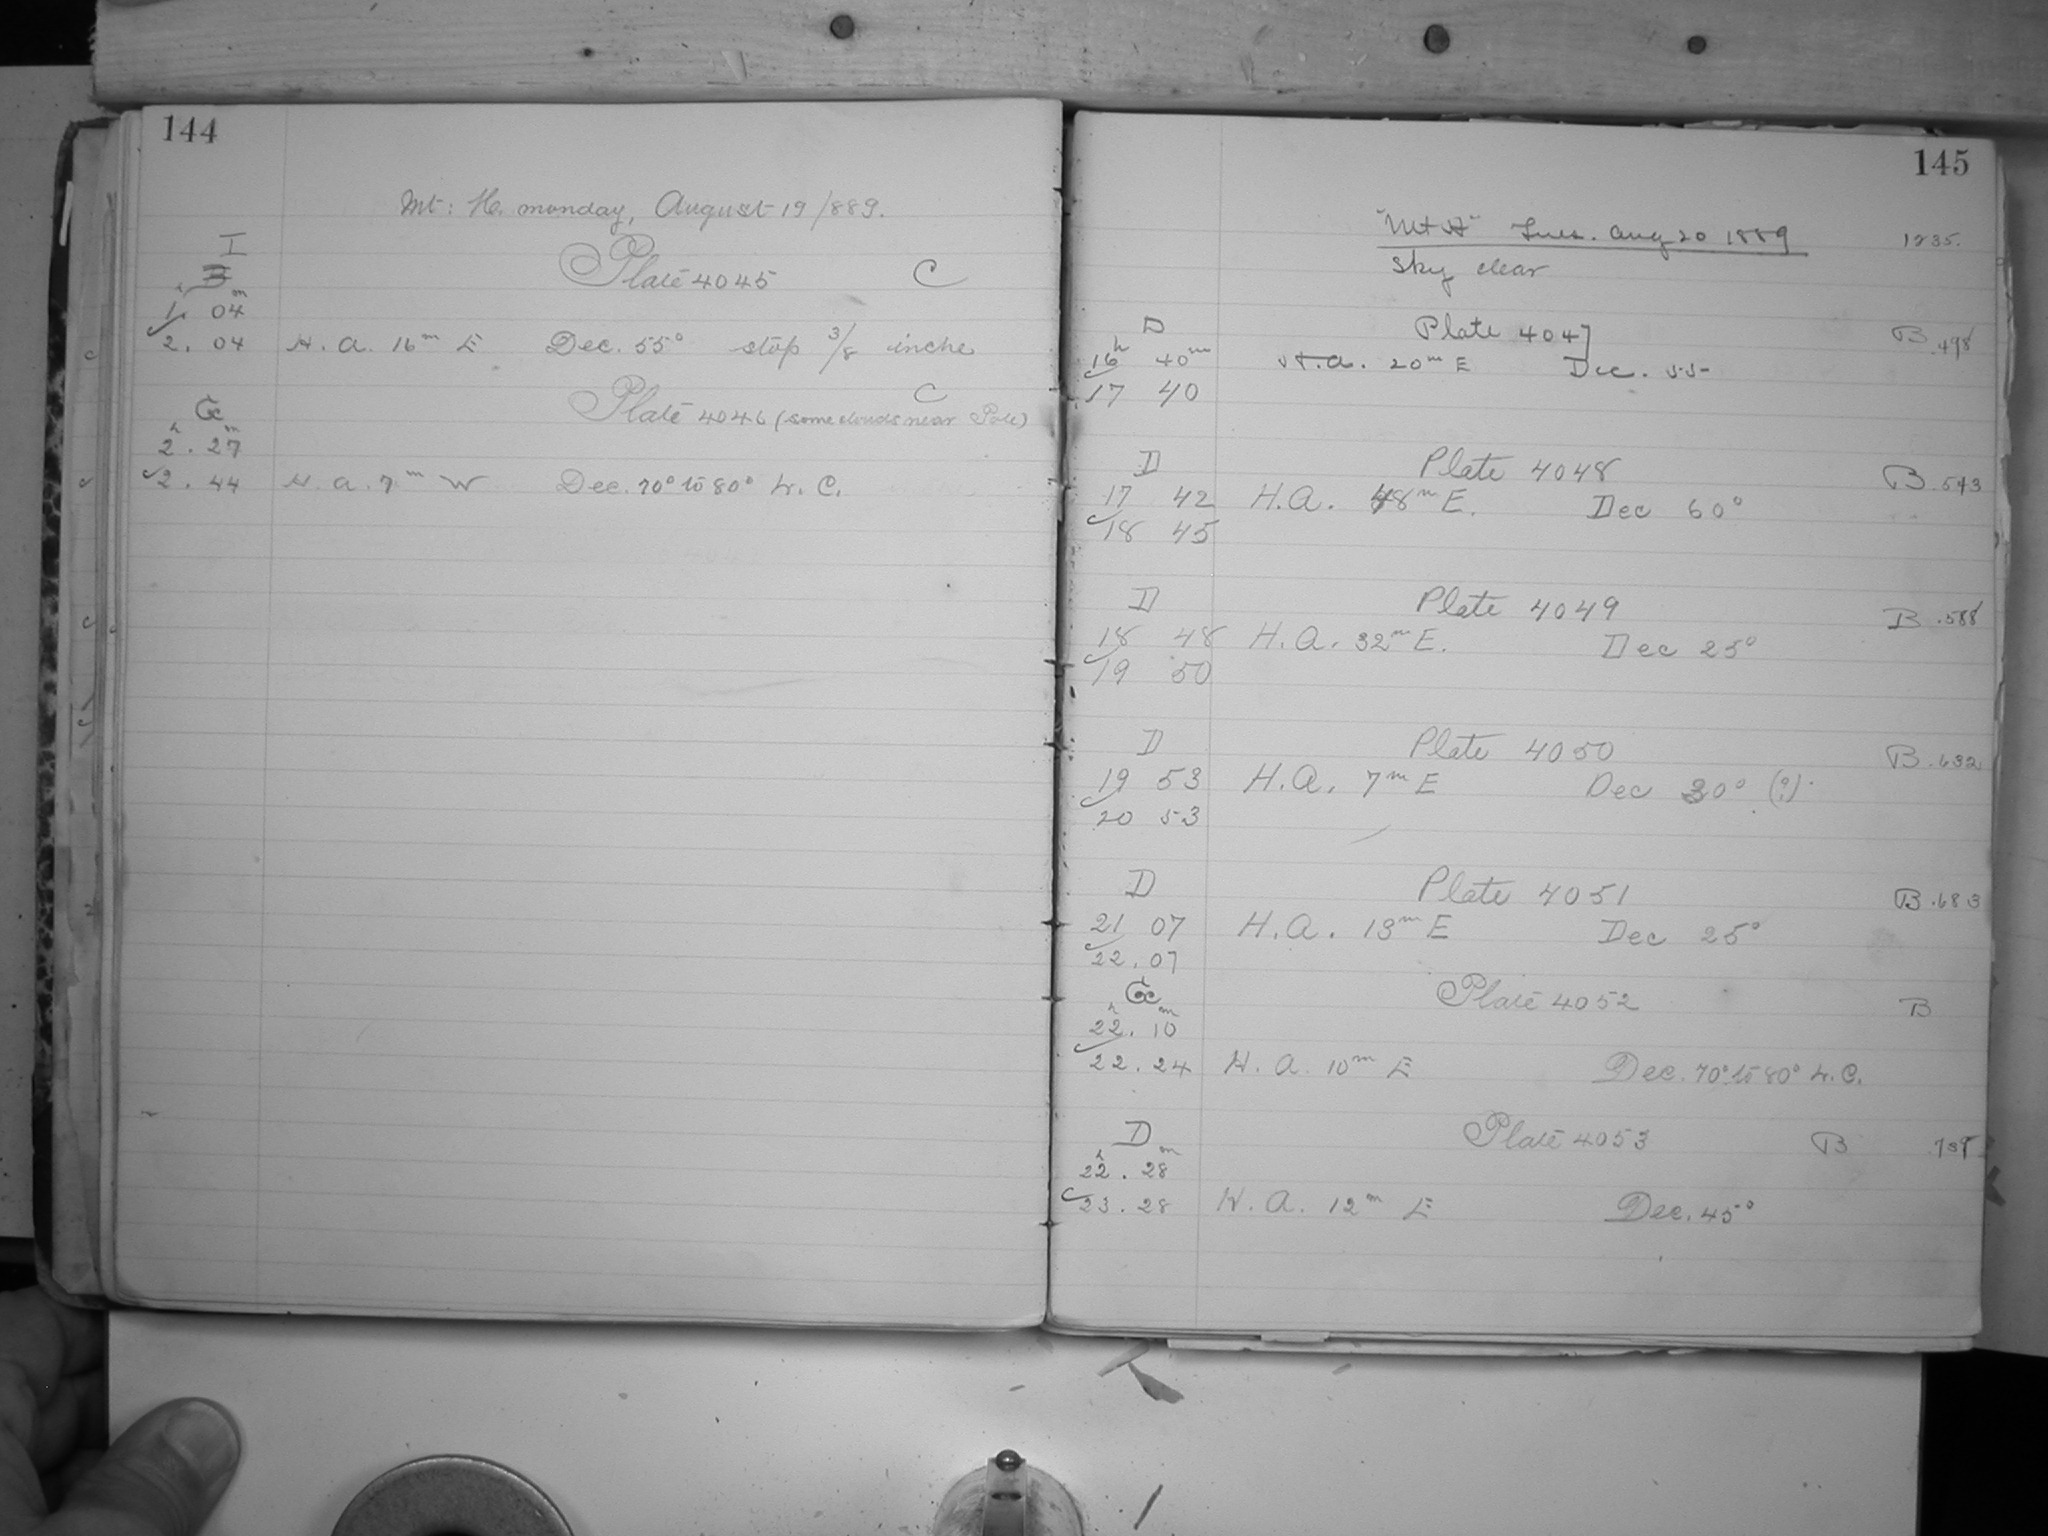 144
Mt: H. monday, August 19/889.
I
Plate 4045 C
h m
1. 04
2. 04 H. A. 16m E Dec. 55° stop 3/8 inche
Gc Plate 4046 (some clouds near Pole) C
h m
2. 27
2. 44 H. a. 7m W Dec. 70° to 80° L. C.
145
"Mt H" Tues. Aug 20 1889 1235.
Sky clear
D Plate 4047 B .498
16h 40m H.a. 20m E Dec. 55
17 40
D Plate 4048 B .543
17 42 H.A. 48m E. Dec 60°
18 45
D Plate 4049 B .588
18 48 H.A. 32m E. Dec 25°
19 50
D Plate 4050 B .632
19 53 H.A. 7m E Dec 30° (?)
20 53
D Plate 4051 B .683
21 07 H.A. 13m E Dec 25°
22. 07
Gc Plate 4052 B
h m
22. 10
22. 24 H. A. 10m E Dec. 70° to 80° L. C.
D Plate 4053 B
h m
22. 28
23. 28 H. A. 12m E Dec. 45°